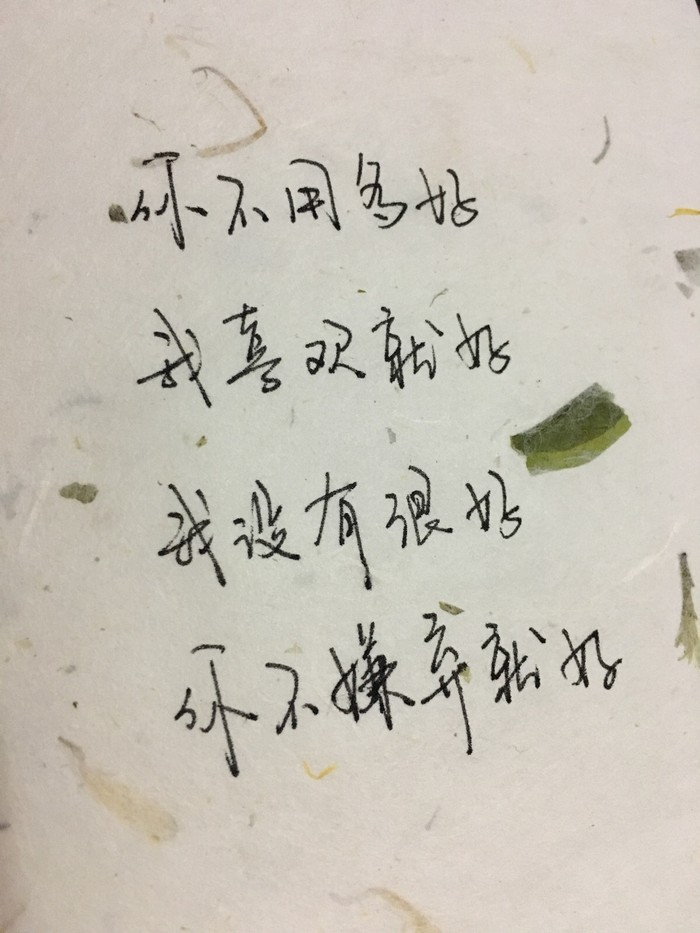 你不用多好
我喜欢就好
我没有很好
你不嫌弃就好